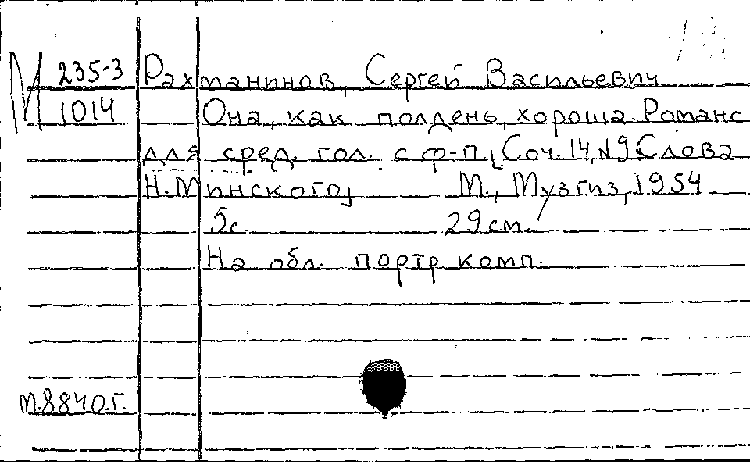 М 235-3 Рахманинов, Сергей Васильевич
1014 Она, как полдень, хороша. Романс
для сред. гол. с ф-п. [Соч. 14, №9. Слова
Н. Минского]   М., Музгиз, 1954
5с   29см.
На обл. портр. комп.
М.8840.г.